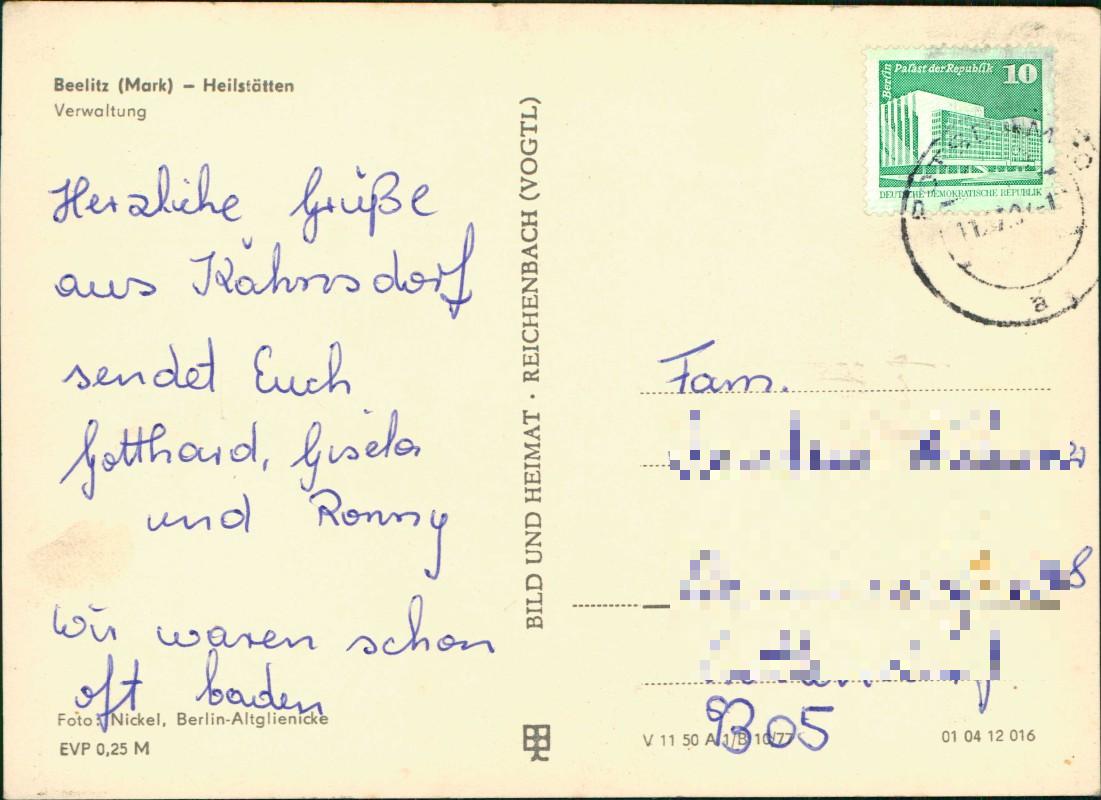 Beelitz (Mark) – Heilstätten
Verwaltung
Herzliche Grüße
aus Kähnsdorf
sendet Euch
Gotthard, Gisela
und Ronny
Wir waren schon
oft baden
Foto: Nickel, Berlin-Altglienicke
EVP 0,25 M
BILD UND HEIMAT · REICHENBACH (VOGTL)
Berlin Palast der Republik 10
DEUTSCHE DEMOKRATISCHE REPUBLIK
a
Fam.
9305
V 11 50 A 1/B 10/77
01 04 12 016